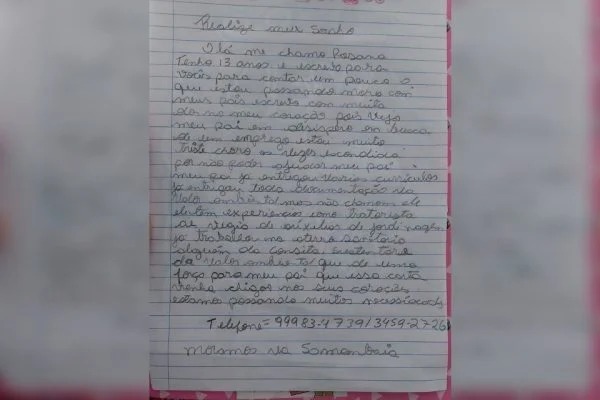 Realize meu Sonho
Olá me chamo Rosana
Tenho 13 anos e escrevo para
vocês para contar um pouco o
que estou passando moro com
meus pais escrevo com muita
dor no meu coração pois vejo
meu pai em desespero em busca
de um emprego estou muito
triste choro as vezes escondida
por não poder ajudar meu pai
meu pai ja entregou varios currículos
ja entregou toda documentação na
Valor ambiental mas não chamam ele
ele tem experiencia como tratorista
de auxiliar de jardinagem
ja trabalhou no aterro sanitario
alguém da
da Valor ambiental que de uma
força para meu pai que essa carta
venha chegar nos seus corações
estamos passando muitas necessidades
Telefone = 99983-4739/3459-2726
moramos na Samambaia